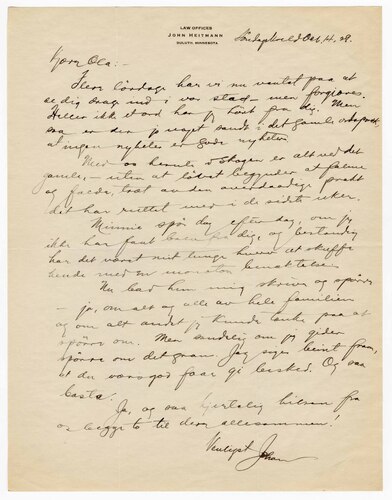 LAW OFFICES
JOHN HEITMANN
DULUTH, MINNESOTA
Søndagkveld Oct. 14. 28.
Kjære Ola:-
Flere lördage har vi nu ventet paa at
se dig drage ind i vor stad - men forgjæves.
Heller ikke et ord har jeg hört fra dig. Men
saa er den jo noget sandt i det gamle ordsprog
at ingen nyheter er gode nyheter.
Med os herute i skogen er alt ved det
gamle, - uten at lövet begynder at falme
og falde, træt av den
det har i de sidste uker.
Minnie spör dag efter dag, om jeg
ikke har faat brev fra dig, og bestandig
har det været mit tunge hverv at skuffe
hende med en monoton benektelse.
Nu bad hun mig skrive og spörre
- jo, om alt og alle av hele familien
og om alt andet jeg kunde tænke paa at
spörre om. Men jeg gider
spörre om det gran. Jeg siger beint fram,
at du værsgod faar gi besked. Og saa
basta!
Ja, og saa hjertelig hilsen fra
os begge to til dere allesammen!
Venligst Johan